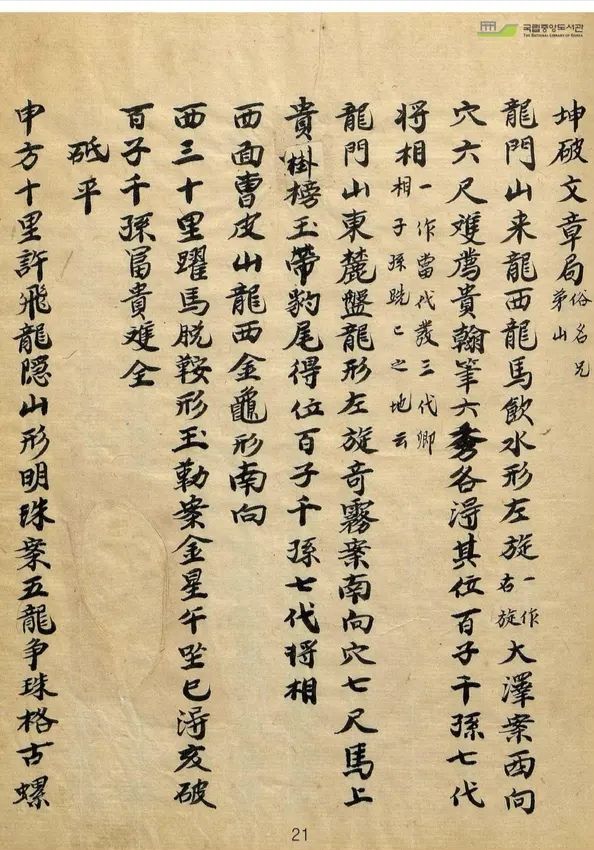 국립중앙도서관
THE NATIONAL LIBRARY OF KOREA
坤破文章局俗名兄弟山
龍門山来龍西龍馬飲水形左旋一作右旋大澤案西向
穴六尺雙薦貴翰筆六秀各淂其位百子千孫七代
将相一作當代發三代卿相子孫詵〻之地云
龍門山東麓盤龍形左旋奇霧案南向穴七尺馬上
貴掛榜玉帶豹尾得位百子千孫七代将相
西面曹皮山龍西金龜形南向
西三十里躍馬脫鞍形玉勒案金星午坐巳淂亥破
百子千孫富貴雙全
砥平
申方十里許飛龍隠山形明珠案五龍争珠格古螺
21